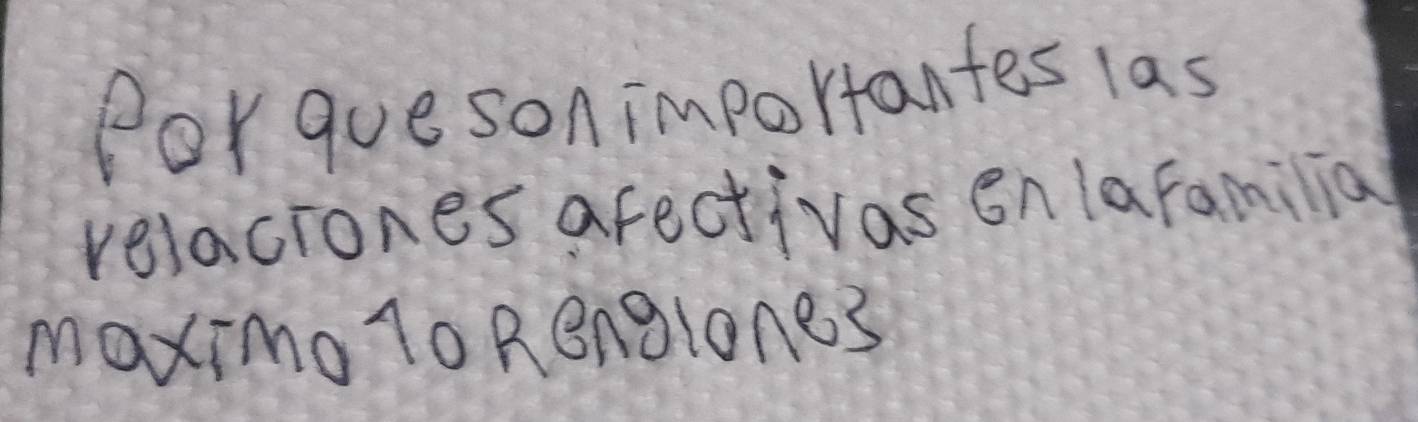 Por que son importantes las
relaciones afectivas en la familia
maximo 10 Renglones